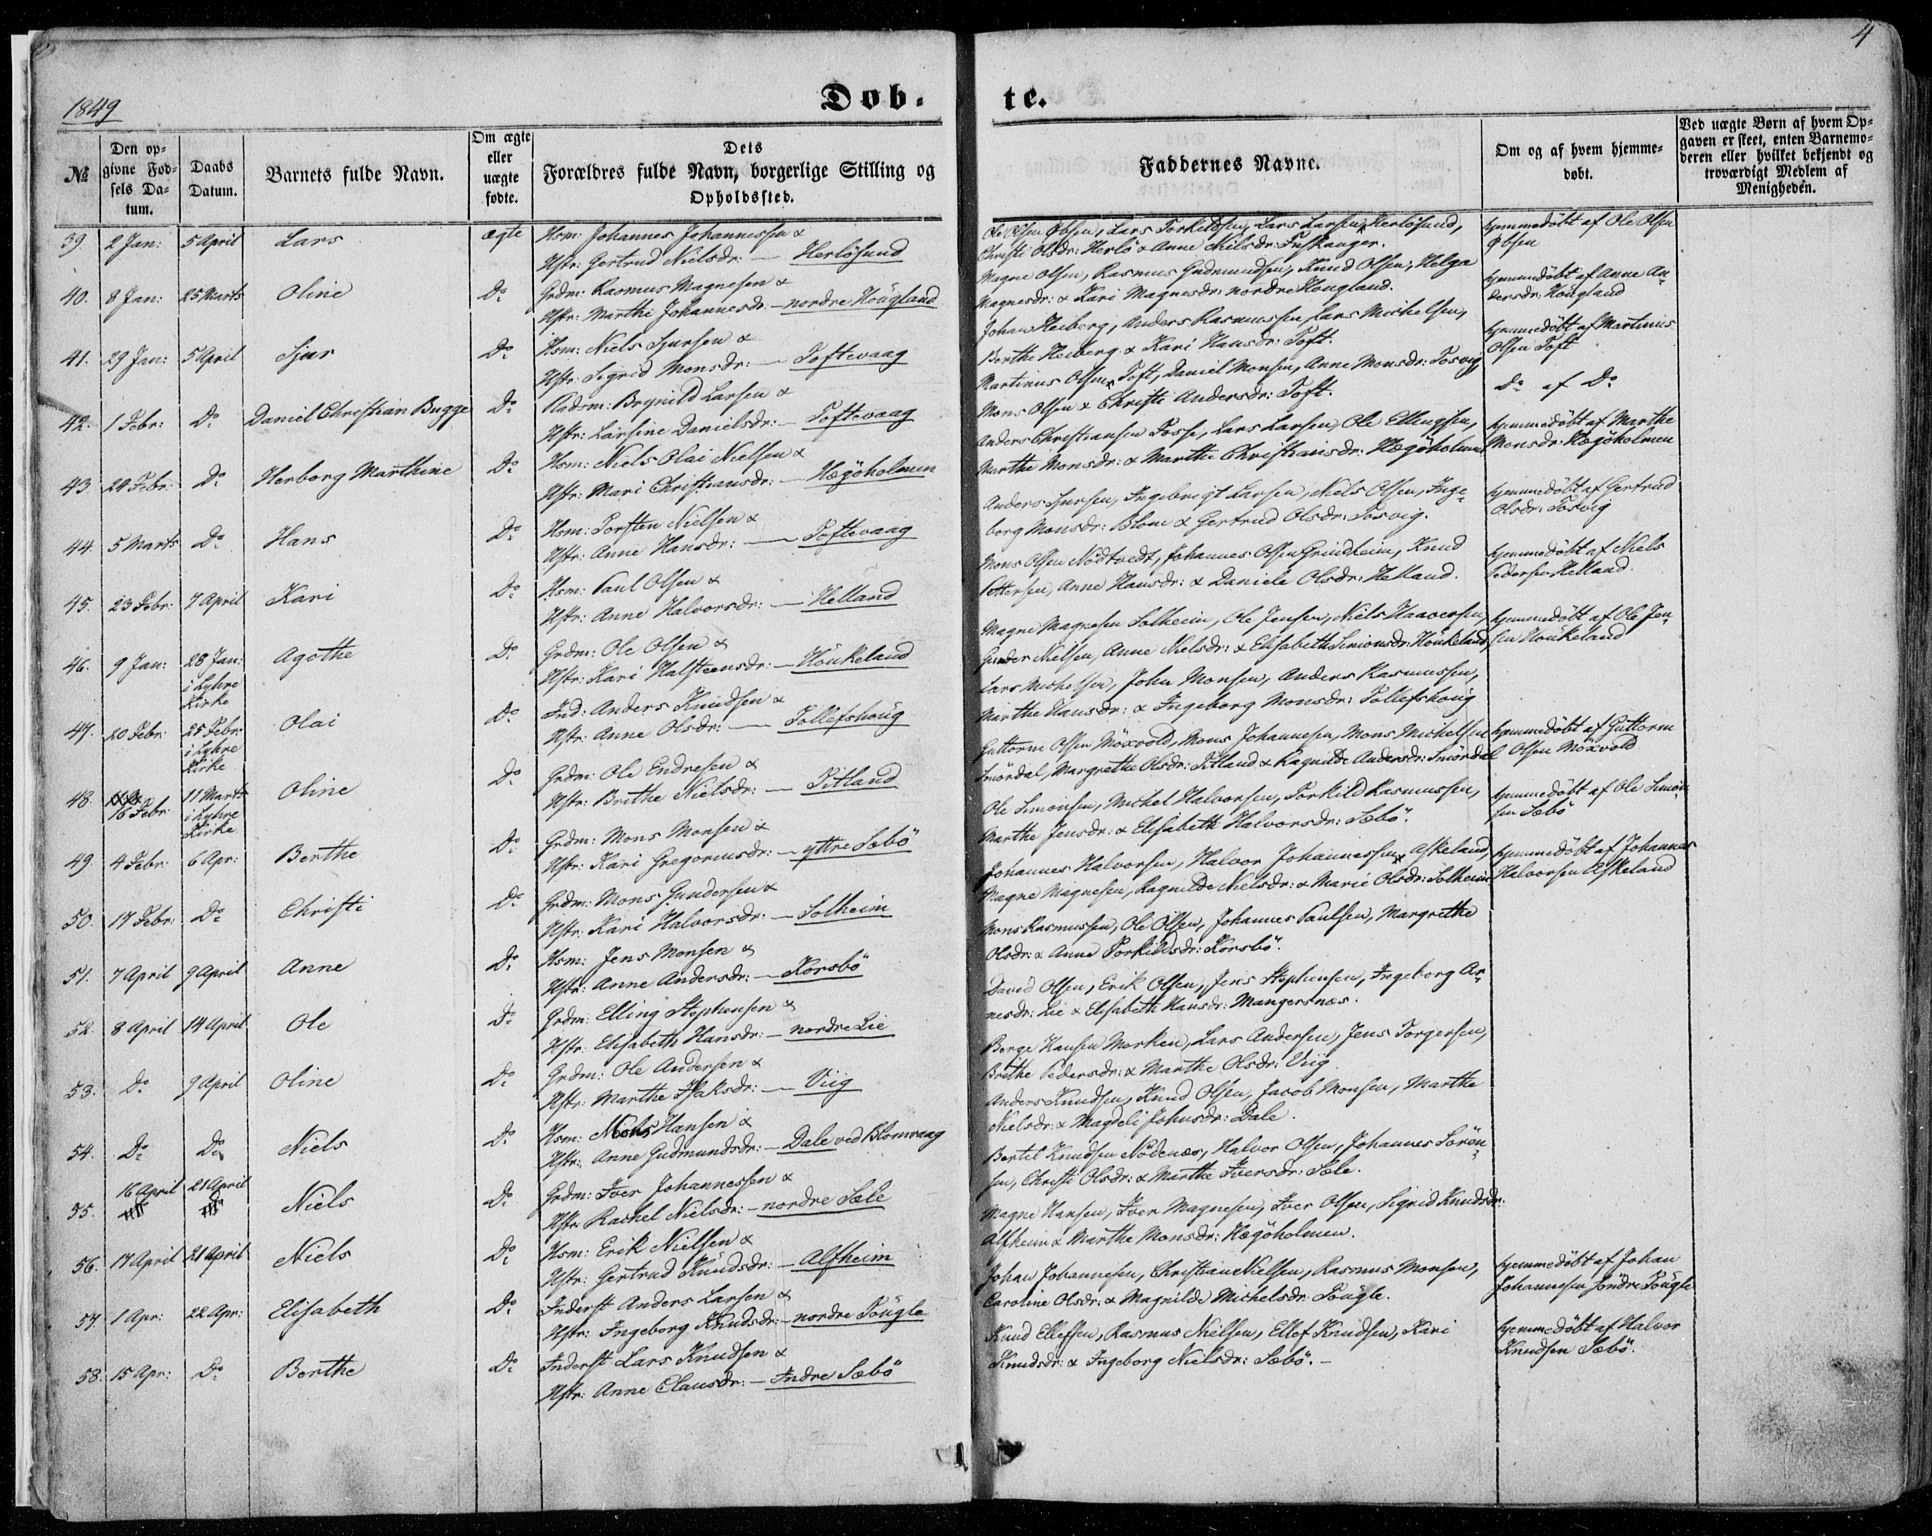 4
1849
Døb-
te.
№
Den op-
givne Fød-
sels Da-
tum.
Daabs
Datum.
Barnets fulde Navn.
Om ægte
eller
uægte
fødte.
Dets
Forældres fulde Navn, borgerlige Stilling og
Opholdssted.
Faddernes Navne.
Om og af hvem hjemme-
døbt.
Ved uægte Børn af hvem Op-
gaven er skeet, enten Barnemo-
deren eller hvilket bekjendt og
troværdigt Medlem af
Menigheden.
39. 2 Jan: 5 April Lars ægte Hsm: Johannes Johannessen &
Hstr: Gertrud Nielsdr: — Herløsund
Ole Olsen Øbsen, Lars Torkildsen, Lars Larsen Herløsund,
Christi Olsdr: Herlø & Anne Nielsdr: Tuskanger.
hjemmedöbt af Ole Olsen
Øbsen
40. 8 Jan: 25 Marts Oline Do Grdm: Rasmus Magnesen &
Hstr: Marthi Johannesdr: nordre Hougland
Magne Olsen, Rasmus Gudmundsen, Knud Olsen, Helga
Magnesdr: & Kari Magnesdr: nordre Hougland.
hjemmedöbt af Anne An-
dersdr: Hougland
41. 29 Jan: 5 April Sjur Do Hsm: Niels Sjursen &
Hstr: Sigrid Monsdr: — Toftevaag
Johan Heiberg, Anders Rasmussen, Lars Michelsen,
Berthe Heiberg & Kari Hansdr: Toft.
hjemmedöbt af Martinus
Olsen Toft
42. 1 Febr: Do Daniel Christian Bugge Do Brynild Larsen &
Hstr: Larsine Danielsdr: — Toftevaag
Martinus Olsen Toft, Daniel Monsen, Anne Monsdr: Tosvig
Mons Olsen & Christi Andersdr: Toft.
Do af Do
43. 24 Febr: Do Herborg Marthine Do Hsm: Niels Olai Nielsen &
Hstr: Mari Christiansdr: — Hægøholmen
Anders Christiansen Fosse, Lars Larsen, Ole Ellingsen,
Marthe Monsdr: & Marthe Christiansdr: Hægøholmen
hjemmedöbt af Marthe
Monsdr: Hægøholmen
44. 5 Marts Do Hans Do Hsm: Torsten Nielsen &
Hstr: Anne Hansdr: — Toftevaag
Anders Sjursen, Ingebrigt Larsen, Niels Olsen, Inge-
borg Monsdr: Blom & Gertrud Olsdr: Tosvig.
hjemmedöbt af Gertrud
Olsdr: Tosvig
45. 23 Febr: 7 April Kari Do Hsm: Paul Olsen &
Hstr: Anne Halvorsdr: — Helland
Mons Olsen Nødtvedt, Johannes Olsen Grindheim, Knud
Pettersen, Anne Hansdr: & Daniele Olsdr: Helland.
hjemmedöbt af Niels
Pedersen Helland.
46. 9 Jan: 28 Jan:
i Lyhre
Kirke Agothe Do Grdm: Ole Olsen &
Hstr: Kari Halsteensdr: — Höukeland
Magne Magnesen Solheim, Ole Jensen, Niels Haaversen,
Gunder Nielsen, Anne Nielsdr: & Elisabeth Simonsdr: Höukeland
hjemmedöbt af Ole Jen-
sen Houkeland
47. 20 Febr: 25 Febr:
i Lyhre
Kirke Olai Do Ind: Anders Knudsen &
Hstr: Anne Olsdr: — Tollefshoug
Lars Michelsen, John Monsen, Anders Rasmussen,
Marthe Hansdr: & Ingeborg Monsdr: Tollefshoug
48. 16 Febr: 11 Marts
i Lyhre
Kirke Oline Do Grdm: Ole Endresen &
Hstr: Brithe Nielsdr: — Titland
Guttorm Olsen Möxvold, Mons Johannesen, Mons Michelsen
Smördal, Margrethe Olsdr: Titland & Ragnilde Andersdr: Smördal
hjemmedöbt af Guttorm
Olsen Möxvold
49. 4 Febr: 6 Apr: Berthe Do Grdm: Mons Monsen &
Hstr: Kari Gregoriusdr: — yttre Sæbö
Ole Simonsen, Michel Halvorsen, Torkild Rasmussen,
Marthe Jensdr: & Elisabeth Halvorsdr: Sæbö.
hjemmedöbt af Ole Simon-
sen Sæbö
50. 17 Febr: Do Christi Do Grdm: Mons Gundersen &
Hstr: Kari Halvorsdr: — Solheim
Johannes Halvorsen, Halvor Johannessen Askeland,
Magne Magnesen, Ragnilde Nielsdr: & Marie Olsdr: Solheim
hjemmedöbt af Johannes
Halvorsen Askeland
51. 7 April 9 April Anne Do Hsm: Jens Monsen &
Hstr: Anne Andersdr: — Korsbö
Mons Rasmussen, Ole Olsen, Johannes Paulsen, Margrethe
Olsdr: & Anne Torkildsdr: Korsbö.
52. 8 April 14 April Ole Do Grdm: Elling Stephensen &
Hstr: Elisabeth Hansdr: — nordre Lie
David Olsen, Erik Olsen, Jens Stephensen, Ingeborg Ar-
nesdr: Lie & Elisabeth Hansdr: Mangersnæs.
53. Do 9 April Oline Do Grdm: Ole Andersen &
Hstr: Marthe Isaksdr: — Viig
Berge Hansen Morken, Lars Andersen, Jens Torgersen,
Brithe Pedersdr: & Marthe Olsdr: Viig.
54. Do Do Niels Do Hsm: Mons Hansen &
Hstr: Anne Gudmundsdr: — Dale ved Blomvaag
Anders Knudsen, Knud Olsen, Jacob Monsen, Marthe
Nielsdr: & Magdeli Johnsdr: Dale.
55. 16 April 21 April Niels Do Grdm: Iver Johannessen &
Hstr: Rachel Nielsdr: — nordre Sæle
Bertil Knudsen Nödenæs, Halvor Olsen, Johannes Sören-
sen, Christi Olsdr: & Marthe Iversdr: Sæle.
56. 17 April 21 April Niels Do Hsm: Erik Nielsen &
Hstr: Gertrud Knudsdr: — Alfheim
Magne Hansen, Iver Magnesen, Iver Olsen, Sigrid Knudsdr:
Alfheim & Marthe Monsdr: Hægöholmen.
57. 1 Apr: 22 Apr: Elisabeth Do Inderst Anders Larsen &
Hstr: Ingeborg Knudsdr: — nordre Tougle
Johan Johannesen, Christian Nielsen, Rasmus Monsen,
Caroline Olsdr: & Magnilde Michelsdr: Tougle.
hjemmedöbt af Johan
Johannesen Söndre Tougle
58. 15 Apr: Do Berthe Do Inderst Lars Knudsen &
Hstr: Anne Clausdr: — Indre Sæbö
Knud Ellefsen, Rasmus Nielsen, Ellef Knudsen, Kari
Knudsdr: & Ingeborg Nielsdr: Sæbö. —
hjemmedöbt af Halvor
Knudsen Sæbö.